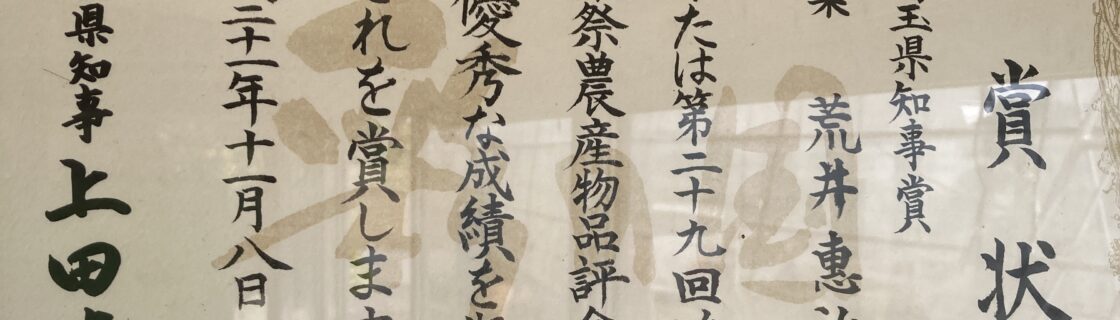 賞状
玉県知事賞
荒井惠
たは第二十九回
祭農産物品評会
優秀な成績を
れを賞します
二十一年十一月八日
県知事
上田